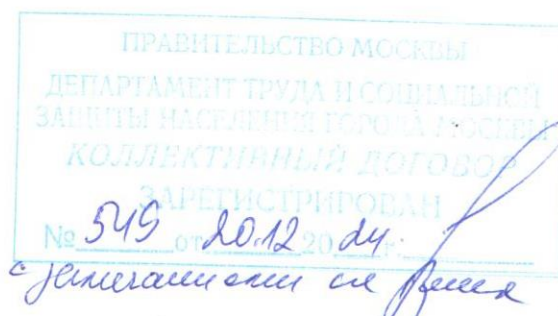 ПРАВИТЕЛЬСТВО МОСКВЫ
ДЕПАРТАМЕНТ ТРУДА И СОЦИАЛЬНОЙ
ЗАЩИТЫ НАСЕЛЕНИЯ ГОРОДА МОСКВЫ
КОЛЛЕКТИВНЫЙ ДОГОВОР
ЗАРЕГИСТРИРОВАН
№ 549 от 20.12 20 24 г.
с замечаниями